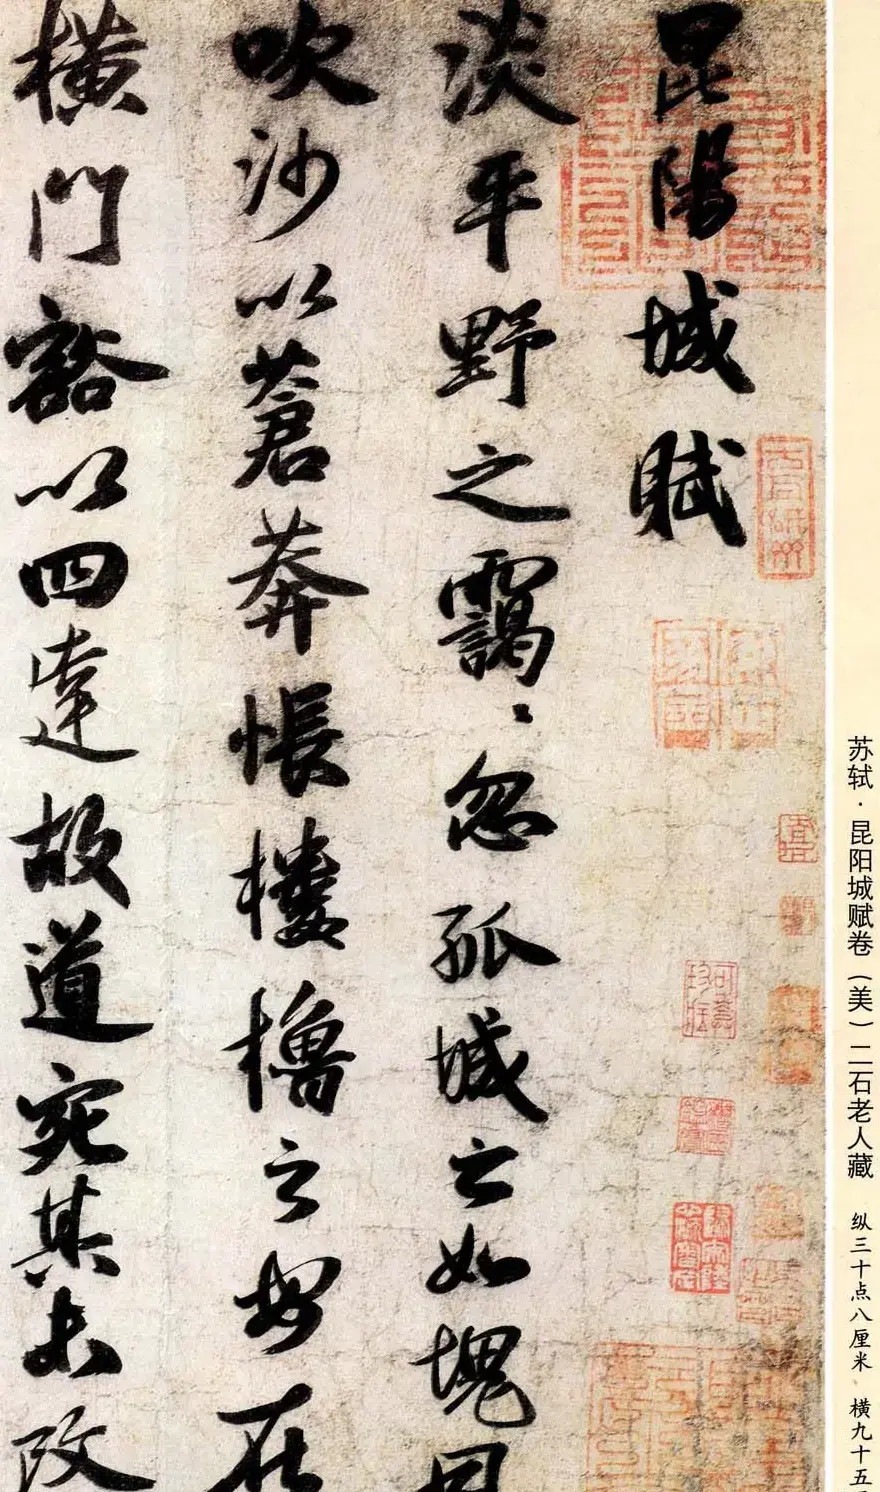 苏轼·昆阳城赋卷（美）二石老人藏 纵三十点八厘米 横九十五
昆陽城賦
淡平野之靄〻忽孤城之如塊風
吹沙以蒼莽悵樓櫓之安在
橫門豁以四達故道宛其未改